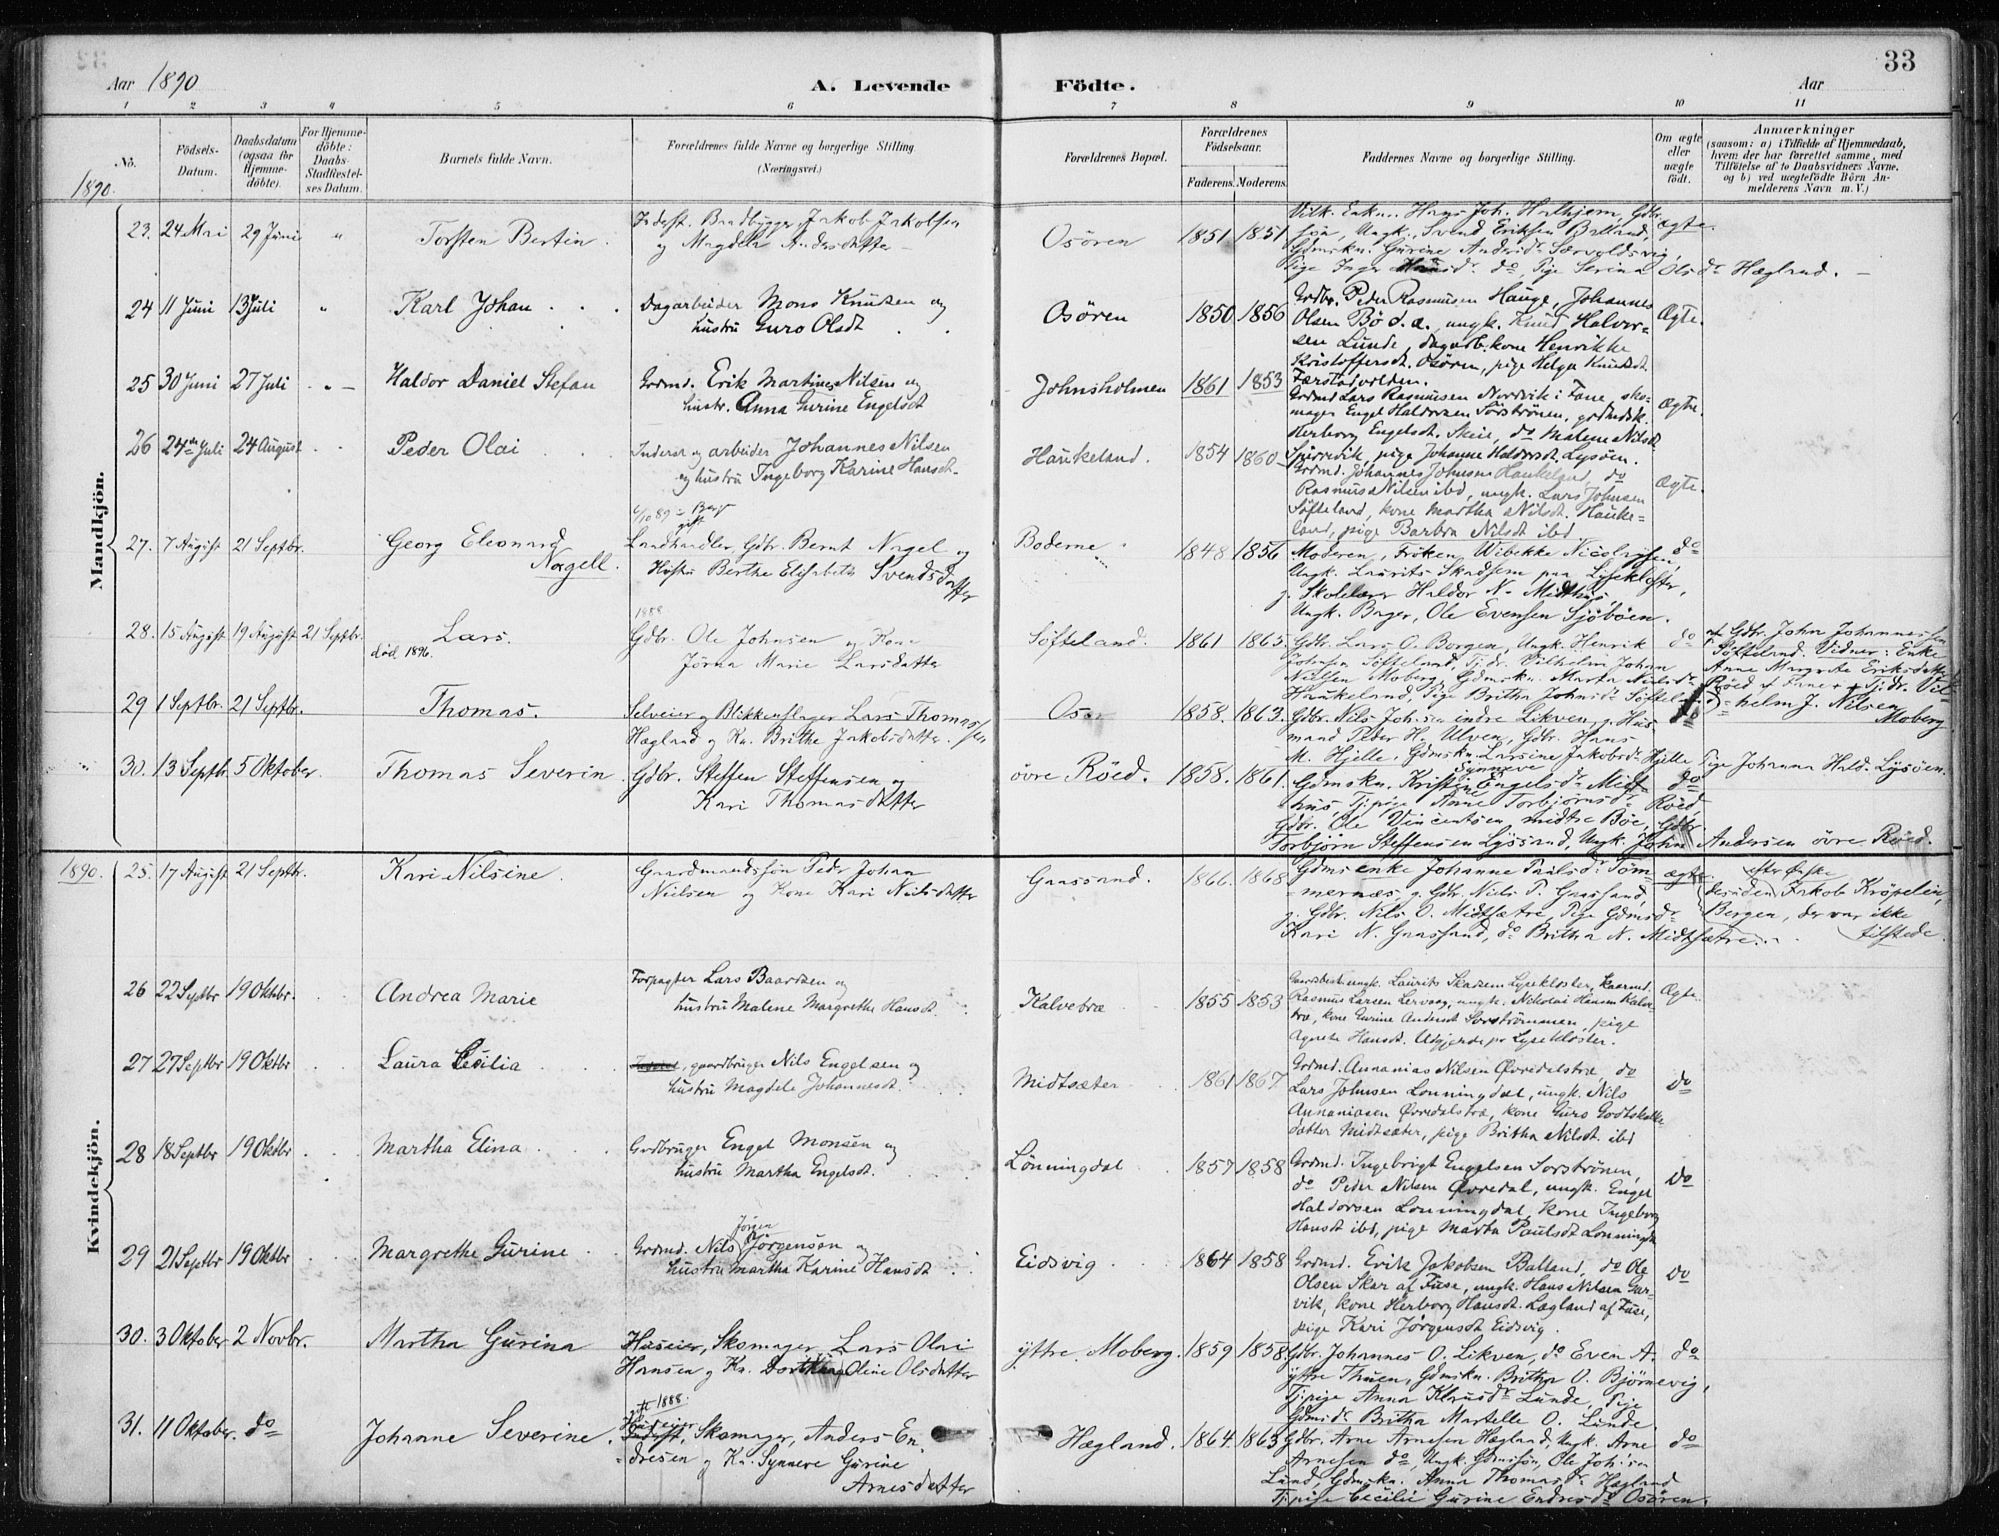 33
Aar 1890
A. Levende Födte.
Aar
1 2 3 4 5 6 7 8 9 10 11
No.
Födsels-Datum.
Daabsdatum (ogsaa for Hjemmedöbte).
For Hjemmedöbte: Daabs-Stadfæstelses Datum.
Barnets fulde Navn.
Forældrenes fulde Navne og borgerlige Stilling (Næringsvei.)
Forældrenes Bopæl.
Forældrenes Födselsaar.
Faderens. Moderens.
Faddernes Navne og borgerlige Stilling.
Om ægte eller uægte födt.
Anmærkninger
(saasom: a) i Tilfælde af Hjemmedaab, hvem der har forrettet samme, med Tilföielse af to Daabsvidners Navne, og b) ved uægtefödte Börn Anmelderens Navn m. V.)
1890.
Mandkjön.
23. 24 Mai 29 Juni " Torsten Bertin.
Inderst. Baadbygger Jakob Jakobsen
og Magdela Andersdatter
Osören 1851 1851
Hans Joh. Halhjem, Gdbr.
søn, Ungk. Svend Eriksen Balland,
Gdmskn. Gurine Andersdr Særvoldsvig,
Pige Inger do, Pige Serina Olsdr Hægland.
ægte.
24 11 Juni 13 Juli " Karl Johan
Dagarbeider Mons Knutsen og
hustru Guro Olsdt
Osören 1850 1856
Grdbr. Peder Rasmussen Hauge, Johannes
Olsen Bö d.a., ungk. Knud Halvorsen
Lunde, dagarb. kone Henrikke
Kristoffersdt. Osören, pige Helga Knutsdt
Færstadvolden.
Ægte.
25 30 Juni 27 Juli " Haldor Daniel Stefan
Grdmd. Erik Martines Nilsen og
hustr. Anna Gurine Engelsdt
Johnsholmen 1861 1853
Grdmd Lars Rasmussen Nordvik i Fane, skomager
Engel Haldorsen Sörströnen, grdmdsk.
Herborg Engelsdt. Skeie, do Malene Nilsdt
pige Johanne Haldorsdt. Lysöen.
Ægte.
26 24de Juli 24 August Peder Olai
Inderst og arbeider Johannes Nilsen
og hustru Ingeborg Karine Hansdt.
Haukeland. 1854 1860
Grdmd. Johannes Johnsen Haukeland, do
Rasmus Nilsen ibd, ungk. Lars Johnsen
Söfteland, kone Martha Nilsdt. Haukeland,
pige Barbra Nilsdt ibd.
Ægte.
27. 7 August 21 Septbr. Georg Eleonard Nagell.
Landhandler, Gdbr. Bernt Nagel og
Hustru Berthe Elisabeth Svendsdatter
Boderne 1848 1856
Moderen, Fröken Wibekke Nicolaysen,
Ungk. Laurits Skadsem paa Lysekloster,
Skolelærer Haldor N. Midthus,
Ungk. Bager, Ole Evensen Sjöböen.
do
28. 15 August 19 August 21 Septbr. Lars.
död 1896.
1888
Gdbr. Ole Johnsen og Kone
Jörna Marie Larsdatter
Söfteland. 1861 1865.
Gdbr. Lars O. Borgen, Ungk. Henrik
Johnsen Söfteland, Tj.dr. Vilhelm Johan
Nilsen Moberg, Gdmskn. Marta Nielsdr
Haukeland, Pige Britha Johnsdr Söfteland
do
af Gdbr. John Johannessen
Söfteland. Vidner: Enke
Anne Margrete Eriksdatter
Röed Tj.dr. Vilhelm
J. Nilsen Moberg
29 1 Septbr. 21 Septbr. Thomas.
Selveier og Blikkenslager Lars Thomas
Hægland og Kn. Brithe Jakobsdatter.
Osör 1858. 1863.
Gdbr. Nils Johnsen indre Likven, Husmand
Peder H. Ulven, Gdbr. Hans
M. Hjelle, Gdmskn. Larsine Jakobsdr Hjelle
Pige Johanna Hald. Lysöen.
do
30. 13 Septbr. 5 Oktober. Thomas Severin.
Gdbr. Steffen Steffensen og
Kari Thomasdatter
övre Röed. 1858. 1861.
Gdmskn. Kristin Synneve Engelsdr Midthus,
Tj.pige Anne Torbjörnsdr Röed,
Gdbr. Ole Vincentsen midtre Böe, Gdbr.
Torbjörn Steffensen Lyssand, Ungk. John Andersen övre Röed.
do
Kvindekjön.
1890. 25. 17 August 21 Septbr. Kari Nilsine.
Gaardmandssön Peder Johan
Nielsen og Kone Kari Nielsdatter
Gaassand. 1866. 1868
Gdmsenke Johanne Pailsdr Tömmernæs,
Gdbr. Nils P. Gaassand,
Gdbr. Nils O. Midtsætre, Pige Gdmsdr
Kari N. Gaassand, do Britha N. Midtsætre.
ægte
efter Önske
desuden Jakob Kröpelin,
Bergen, der var ikke
tilstede.
26 22 Septbr 19 Oktbr. Andrea Marie
Forpagter Lars Baardsen og
hustru Malene Margrethe Hansdt.
Kalvebræ 1855 1853
ungk. Laurits Skadsem Lysekloster,
Rasmus Larsen Lervaag, ungk. Nikolai Hansen Kalvebræ,
kone Gurine Andersdt Sorströnmen, pige
Agnete Hansdt. Lysekloster.
Ægte.
27 27 Septbr 19 Oktbr Laura Cecilia
gaardbruger Nils Engelsen og
hustru Magdele Johannesdt.
Midtsæter 1861 1867
Grdmd. Annanias Nilsen Övredalstræ, do
Lars Johnsen Lonningdal, ungk. Nils
Annaniasen Övredalstræ, kone Guro Godtskalksdatter
Midtsæter, pige Britha Nilsdt. ibd
do
28 18 Septbr 19 Oktbr Martha Elina
Grdbruger Engel Monsen og
hustru Martha Engelsdt.
Lönningdal 1857 1858
Grdmd. Ingebrigt Engelsen Sorströnen,
do Peder Nilsen Övredal, ungk. Engel
Haldorsen Lonningdal, kone Ingeborg
Hansdt ibd, pige Martha Paulsdt Lonningdal
do
29 21 Septbr 19 Oktbr Margrethe Gurine
Jörgen
Grdmd. Nils Jörgensen og
hustru Martha Karine Hansdt
Eidsvig 1864 1858
Grdmd. Erik Jakobsen Balland, do Ole
Olsen Skar af Fuse, ungk. Hans Nilsen Garvik,
kone Herborg Hansdt. Lægland af Fuse,
pige Kari Jörgensdt Eidsvig.
do
30. 3 Oktober 2 Novbr. Martha Gurina
Huseier, Skomager Lars Olai
Hansen og Kn. Dorthea Oline Olsdatter
yttre Moberg. 1859 1858.
Gdbr. Johannes O. Likven, do Even A.
yttre Thuen, Gdmskn. Britha O. Björnevig,
Tj.pige Anna Klausdr Lunde, Pige
Gdmsdr Britha Martelle O. Lunde
do
31. 11 Oktober. do Johanne Severine.
1888.
Huseier, Skomager, Anders Endresen
og Kn. Synneve Gurine
Arnesdatter
Hægland. 1864. 1863
Gdbr. Arne Arnesen Hægland, Ungk. Arne
Arnesen do, Ungk. Gdmssön, Ole Johnsen
Lund, Gdmskn. Anna Thomasdr Hægland
Tj.pige Cecilie Gurine Endresdr Osören.
do